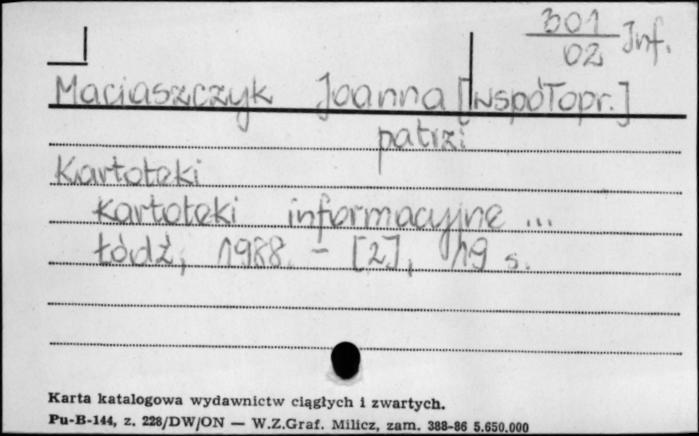 301
02 Inf.
Maciaszczyk Joanna [współopr.]
patrzi
Kartoteki
Kartoteki informacyjne ...
Łódź, 1988. - [2], 19 s.
Karta katalogowa wydawnictw ciągłych i zwartych.
Pu-B-144, z. 228/DW/ON — W.Z.Graf. Milicz, zam. 388-86 5.650.000